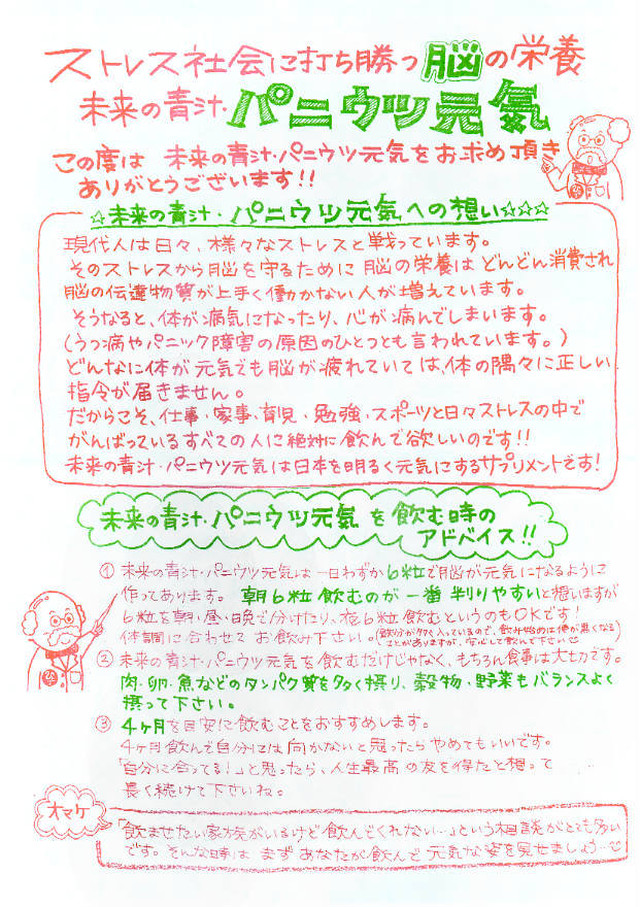 ストレス社会に打ち勝つ脳の栄養
未来の青汁・パニウツ元氣
この度は 未来の青汁・パニウツ元氣をお求め頂き
ありがとうございます!!
☆未来の青汁・パニウツ元氣への想い☆☆☆
現代人は日々、様々なストレスと戦っています。
そのストレスから脳を守るために脳の栄養はどんどん消費され
脳の伝達物質が上手く働かない人が増えています。
そうなると、体が病気になったり、心が病んでしまいます。
(うつ病やパニック障害の原因のひとつとも言われています。)
どんなに体が元気でも脳が疲れていては、体の隅々に正しい
指令が届きません。
だからこそ、仕事・家事・育児・勉強・スポーツと日々ストレスの中で
がんばっているすべての人に絶対に飲んで欲しいのです!!
未来の青汁・パニウツ元氣は日本を明るく元気にするサプリメントです!
未来の青汁・パニウツ元氣を飲む時の
アドバイス!!
① 未来の青汁・パニウツ元氣は一日わずか6粒で脳が元気になるように
作ってあります。朝6粒飲むのが一番判りやすいと想いますが
6粒を朝・昼・晩で分けたり、夜6粒飲むというのもOKです!
体調に合わせてお飲み下さい。(鉄分が多く入っているので、飲み始めは便が黒くなる
ことがありますが、安心して飲んで下さい)
② 未来の青汁・パニウツ元氣を飲むだけじゃなく、もちろん食事は大切です。
肉・卵・魚などのタンパク質を多く摂り、穀物・野菜もバランスよく
摂って下さい。
③ 4ヶ月を目安に飲むことをおすすめします。
4ヶ月飲んで自分には向かないと思ったらやめてもいいです。
「自分に合ってる!」と思ったら、人生最高の友を得たと想って
長く続けて下さいね。
オマケ
「飲ませたい家族がいるけど飲んでくれない…」という相談がとても多い
です。そんな時は まず あなたが飲んで 元気な姿を見せましょう…